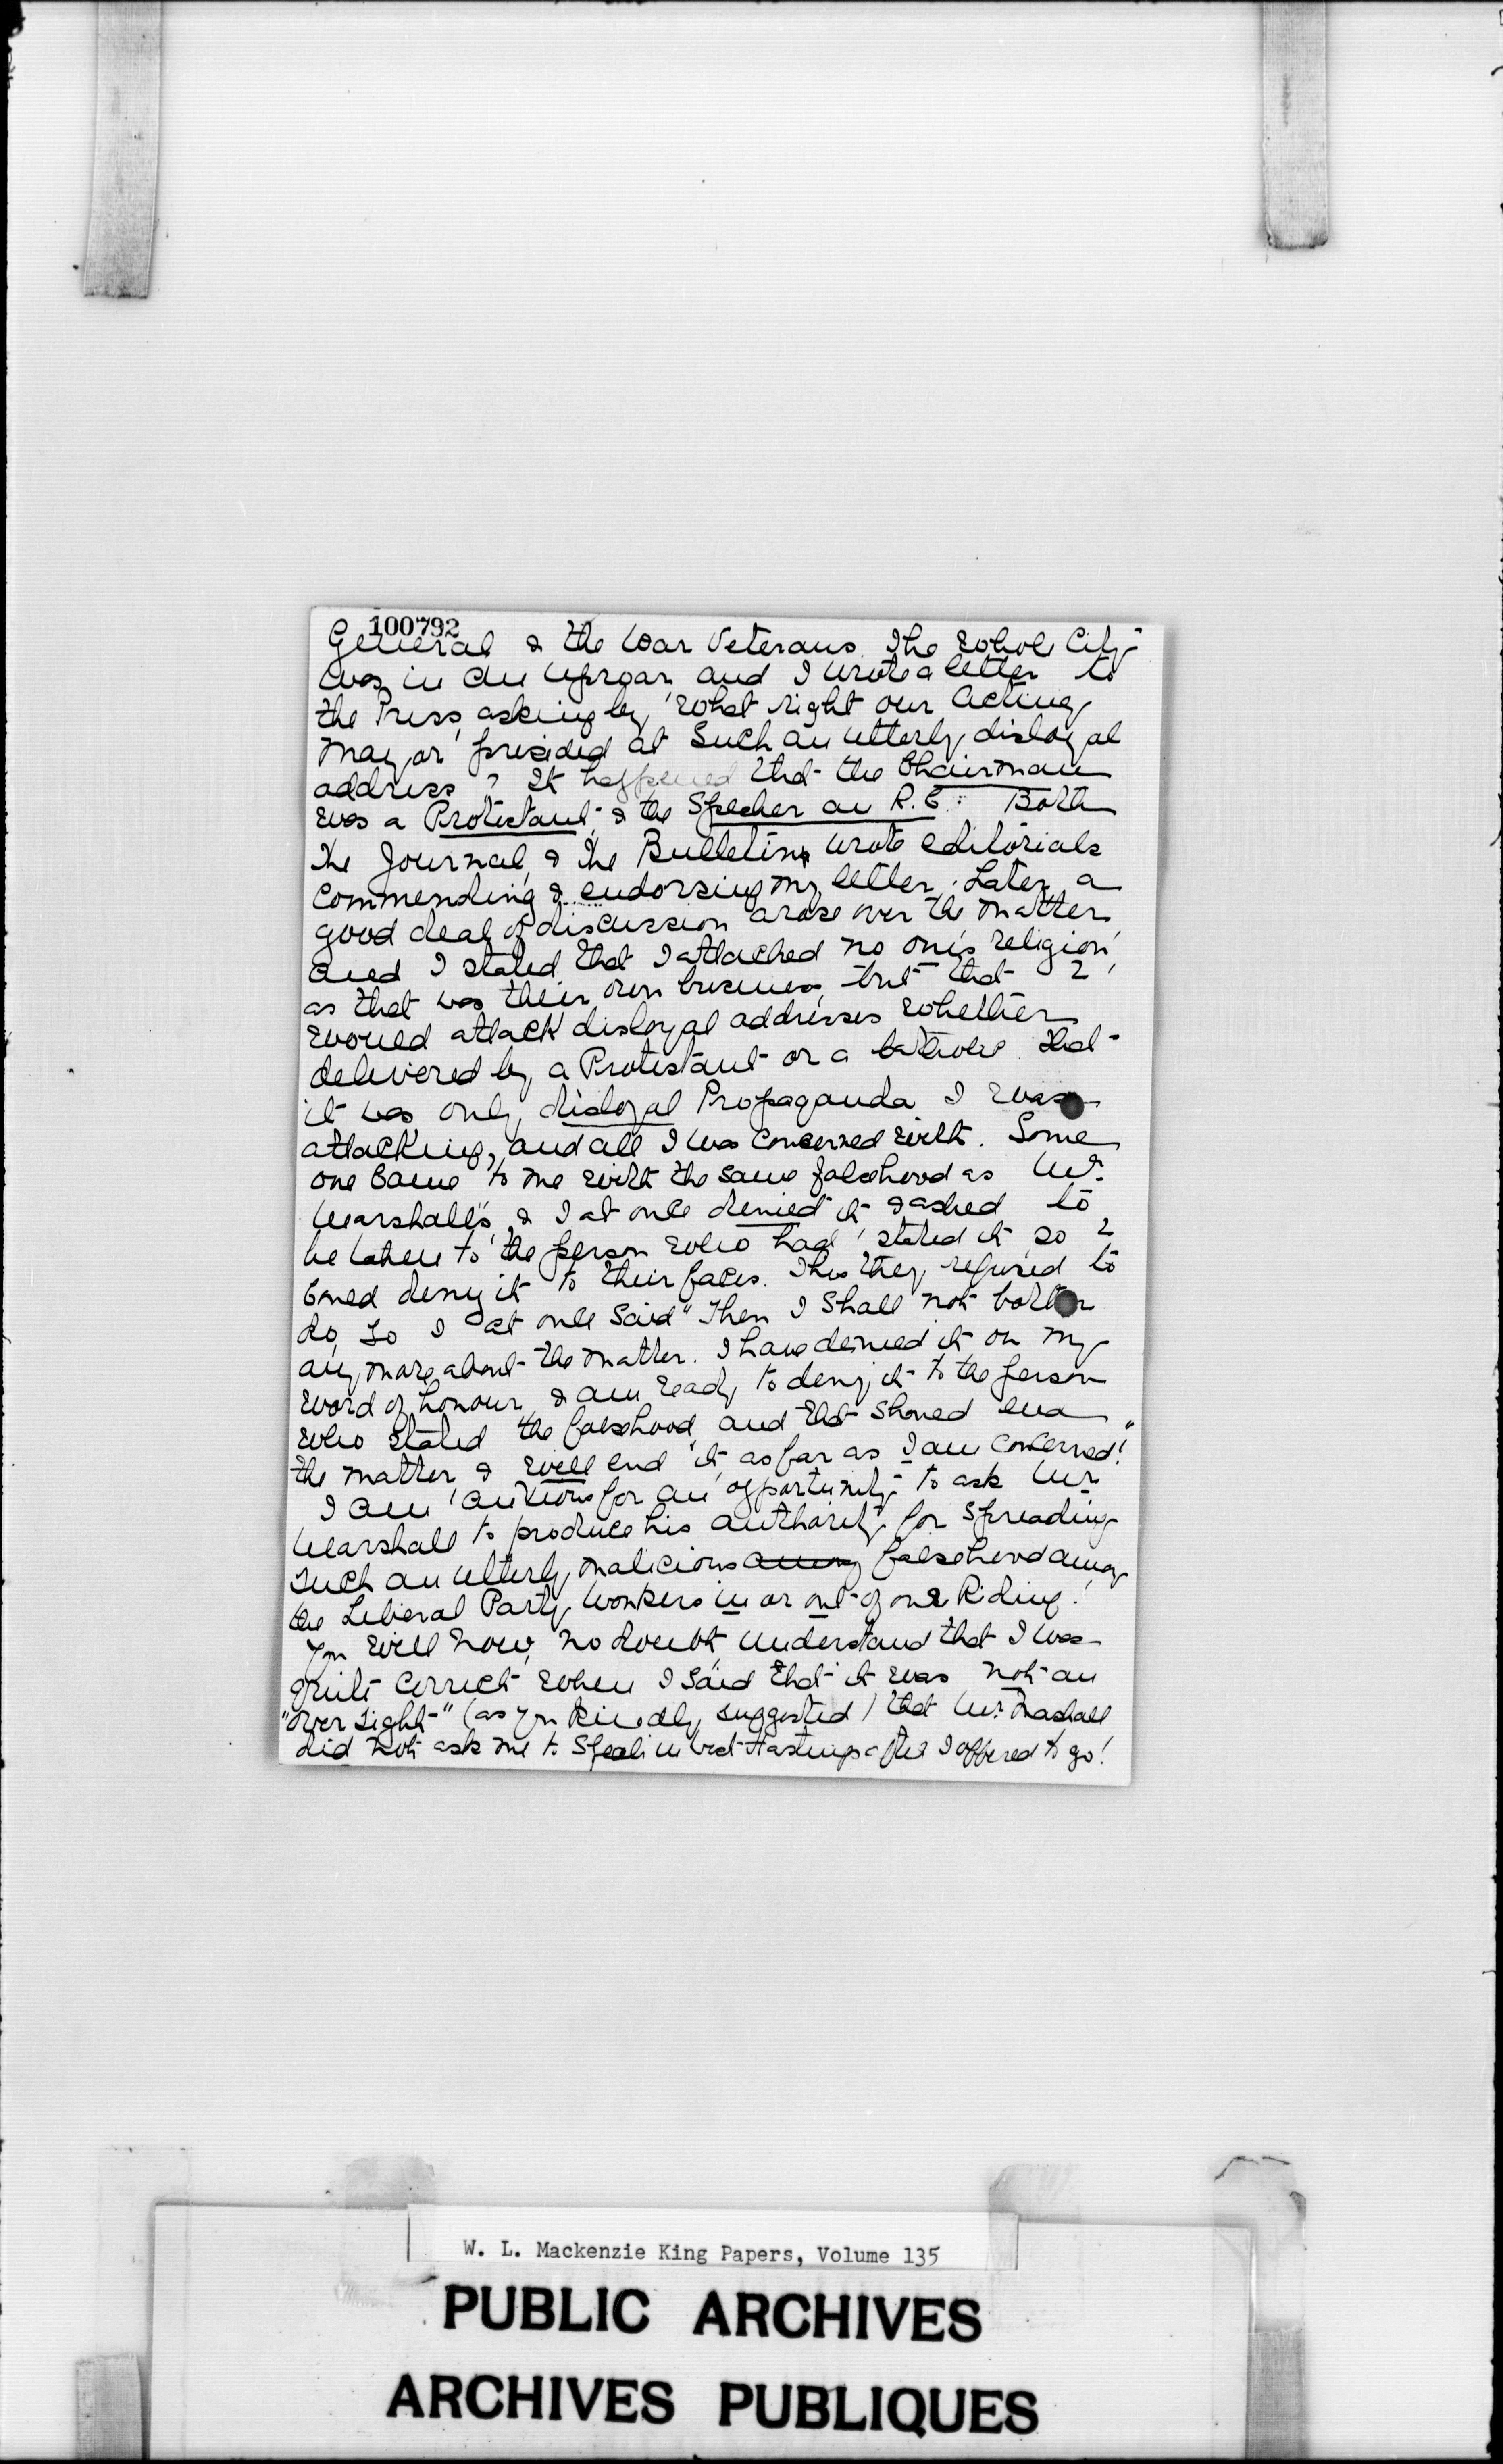 100792
General & the War Veterans. The whole City
was in an uproar and I wrote a letter to
the Press, asking by what right our Acting
Mayor presided at such an utterly disloyal
address? It happened that the Chairman
was a Protestant & the Speaker an R.C. Both
the Journal & the Bulletin wrote editorials
commending & endorsing my letter. Later a
good deal of discussion arose over the matter
and I stated that I attacked no one's religion,
as that was their own business, but that I
would attack disloyal addresses whether
delivered by a Protestant or a Catholic. That
it was only disloyal Propaganda I was
attacking, and all I was concerned with. Some
one came to me with the same falsehood as Mr.
Marshall's, & I at once denied it & asked to
be taken to the person who had stated it so I
could deny it to their faces. This they refused to
do, so I at once said "Then I shall not bother
any more about the matter. I have denied it on my
word of honour & am ready to deny it to the person
who stated the falsehood, and that should end
the matter & will end it, as far as I am concerned!"
I am anxious for an opportunity to ask Mr
Marshall to produce his authority for spreading
such an utterly malicious among falsehood among
the Liberal Party workers in or out of our Riding!
You will now, no doubt, understand that I was
quite correct when I said that it was not an
"oversight" (as you kindly suggested) that Mr. Marshall
did not ask me to speak in West Hastings after I offered to go!
W. L. Mackenzie King Papers, Volume 135
PUBLIC ARCHIVES
ARCHIVES PUBLIQUES